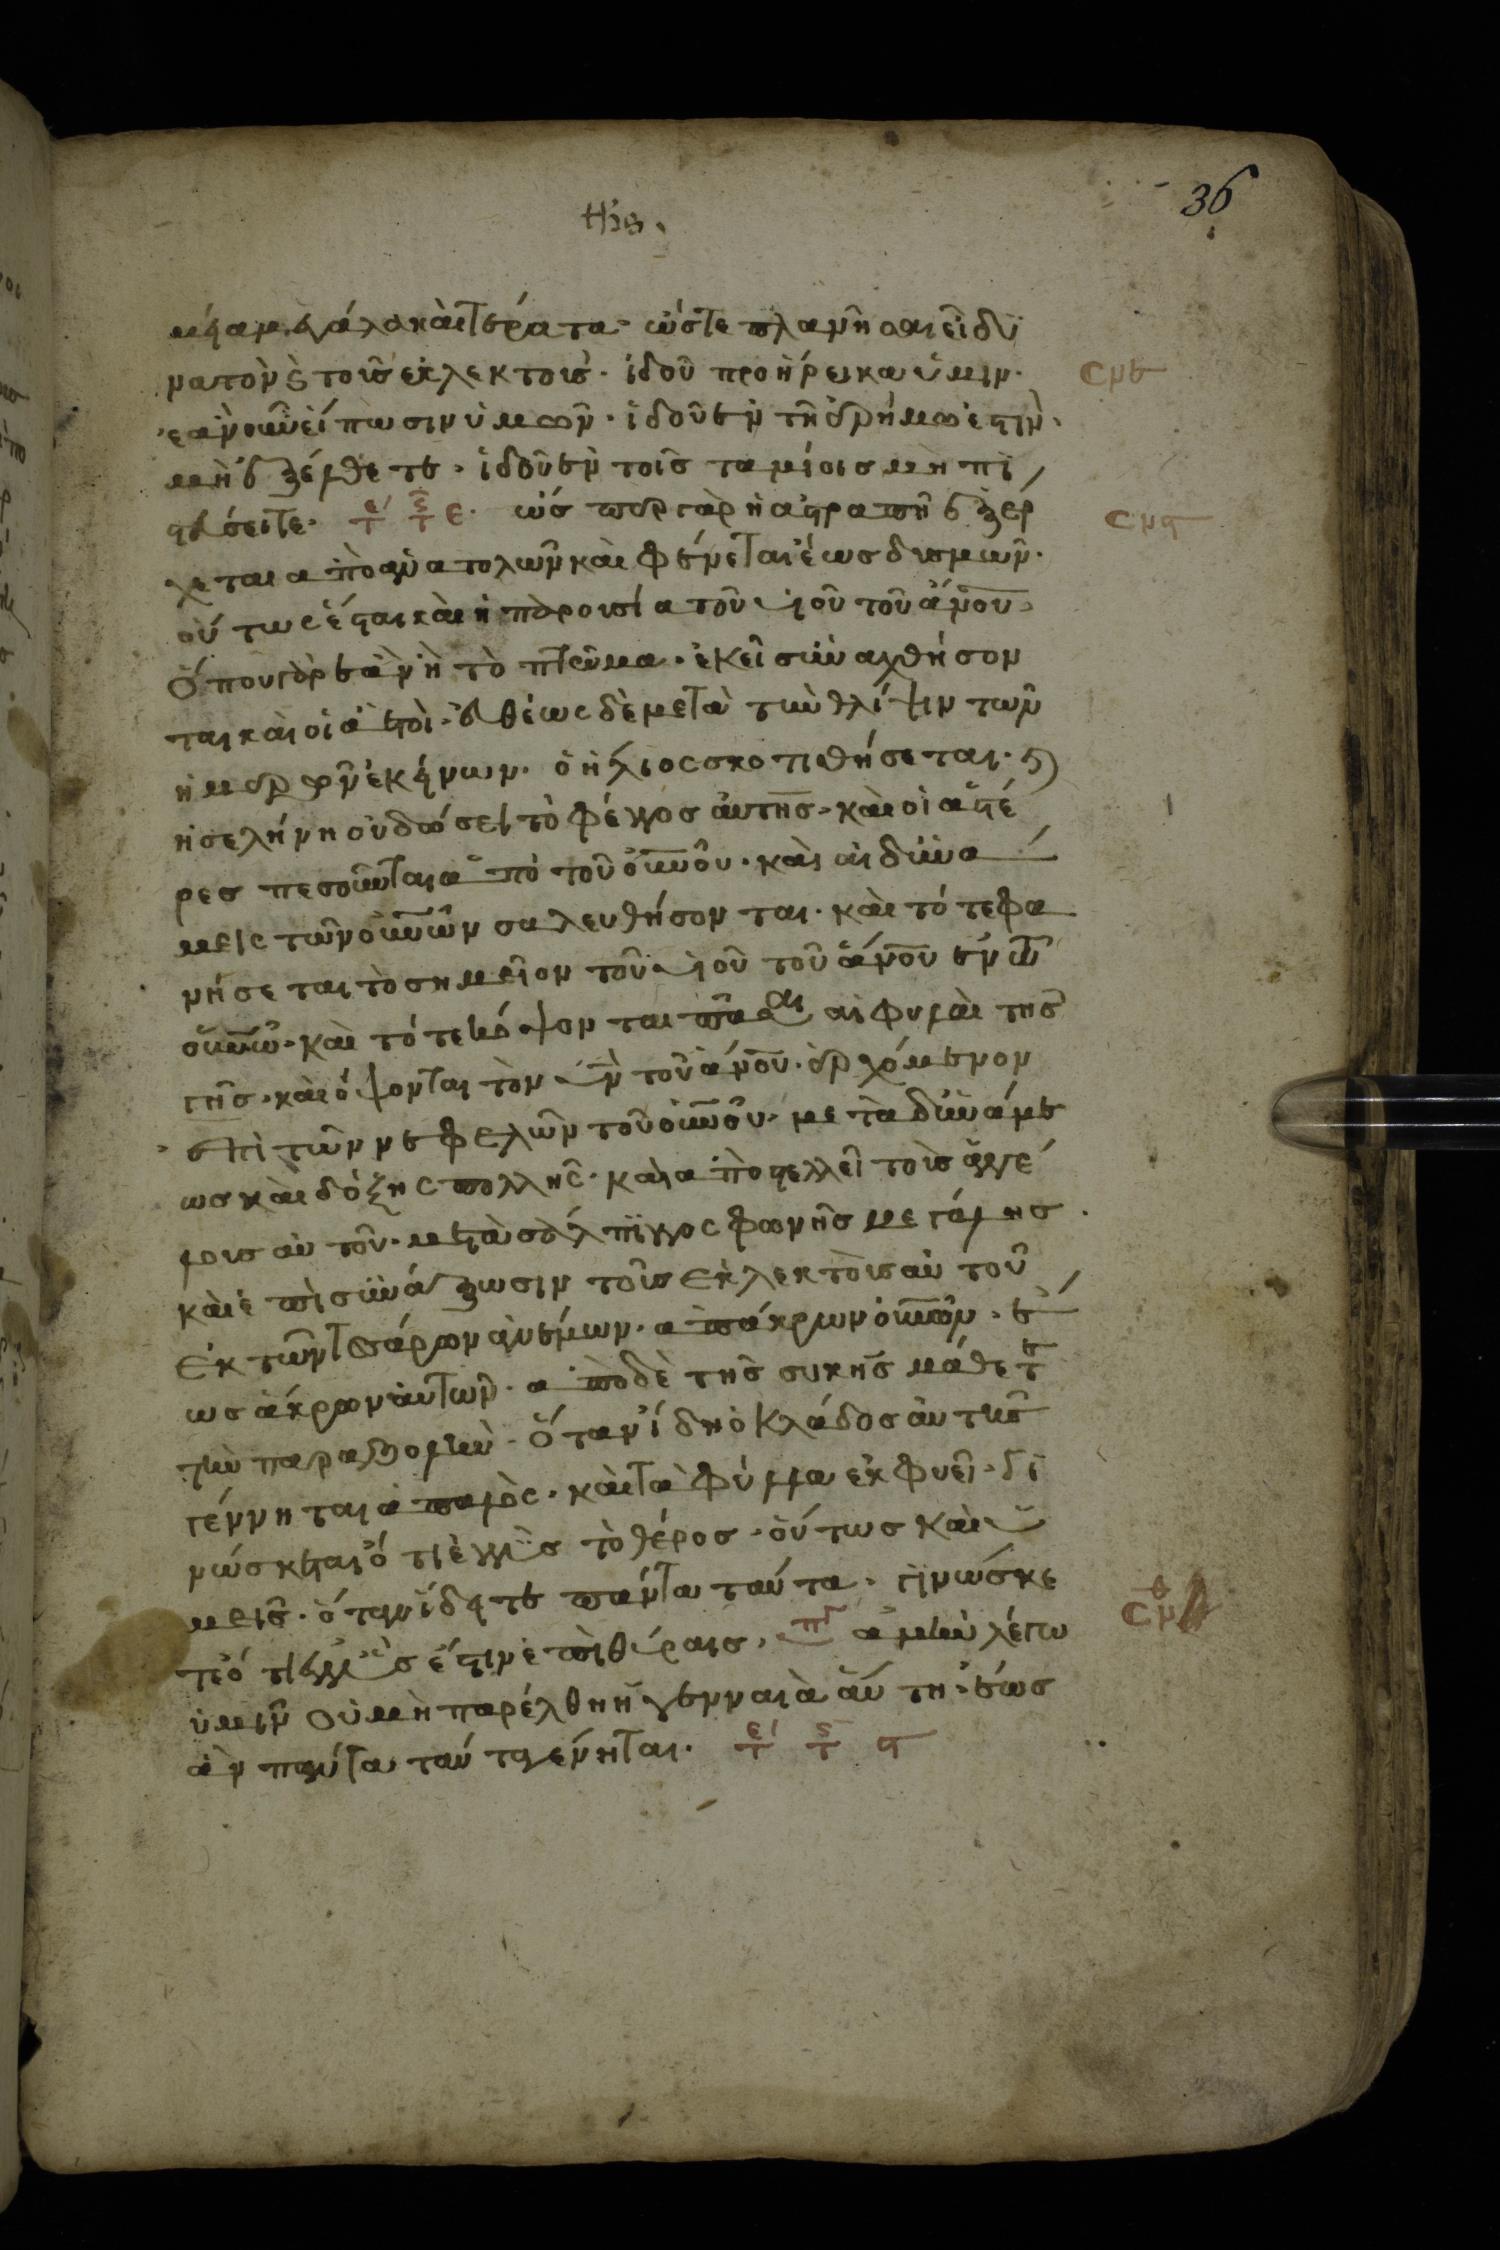 36
μεγάλα καὶ τέρατα· ὥστε πλανῆσαι εἰ δυ
νατὸν καὶ τοὺς ἐκλεκτούς· ἰδοῦ προήρεικα ὑμῖν·
ἐὰν οὖν εἴπωσιν ὑμῶν· ἰδοῦ ἐν τῆ ἐρήμω ἐστὶν·
μὴ ἐξέλθετε· ἰδοῦ ἐν τοῖς ταμίοις μὴ πι
στεύσειτε· ὥσπερ γὰρ ἡ ἀστραπὴ ἐξέρ
χεται ἀπὸ ἀνατολῶν καὶ φαίνεται ἕως δυσμῶν·
οὕτως ἔσται καὶ ἡ παρουσία τοῦ υἱοῦ τοῦ ἀνου·
ὅπου γὰρ ἐὰν ἦ τὸ πτῶμα· ἐκεῖ συναχθήσον
ται καὶ οἱ ἀετοί· εὐθέως δὲ μετὰ τὴν θλίψιν τῶν
ἡμερῶν ἐκείνων· ὁ ἥλιος σκοτισθήσεται· καὶ
ἡ σελήνη οὐ δώσει τὸ φέγγος αὐτῆς· καὶ οἱ ἀστέ
ρες πεσοῦνται ἀπὸ τοῦ οὐνοῦ· καὶ αἱ δυνά
μεις τῶν οὐνῶν σαλευθήσονται· καὶ τότε φα
νήσεται τὸ σημεῖον τοῦ υἱοῦ τοῦ ἀνου ἐν τῶ
οὐνῶ· καὶ τότε κόψονται πᾶσαι αἱ φυλαὶ τῆς
γῆς· καὶ ὄψονται τὸν υἱν τοῦ ἀνου· ἐρχόμενον
ἐπὶ τῶν νεφελῶν τοῦ οὐνοῦ· μετὰ δυνάμε
ως καὶ δόξης πολλῆς· καὶ ἀποστελλεῖ τοὺς ἀγγέ
λους αὐτοῦ· μετὰ σάλπιγγος φωνῆς μεγάλης·
καὶ ἐπισυνάξωσιν τοὺς ἐκλεκτοὺς αὐτοῦ
ἐκ τῶν τεσάρων ἀνέμων· ἀπ ἄκρων οὐνῶν· ἕ
ως ἄκρων αὐτῶν· ἀπὸ δὲ τῆς συκῆς μάθετε
τὴν παραβολὴν· ὅταν ἴδη ὁ κλάδος αὐτῆς
γέννηται ἁπαλὸς· καὶ τὰ φύλλα ἐκφυεῖ· γι
νώσκεται ὅτι ἐγγὺς τὸ θέρος· οὕτως καὶ ὑ
μεῖς· ὅταν ἴδητε πάντα ταῦτα· γινώσκε
τε ὅτι ἐγγύς ἐστιν ἐπὶ θύραις· ἀμὴν λέγω
ὑμῖν οὐ μὴ παρέλθη ἡ γενναιὰ αὕτη· ἕως
ἂν πάντα ταῦτα γένηται·